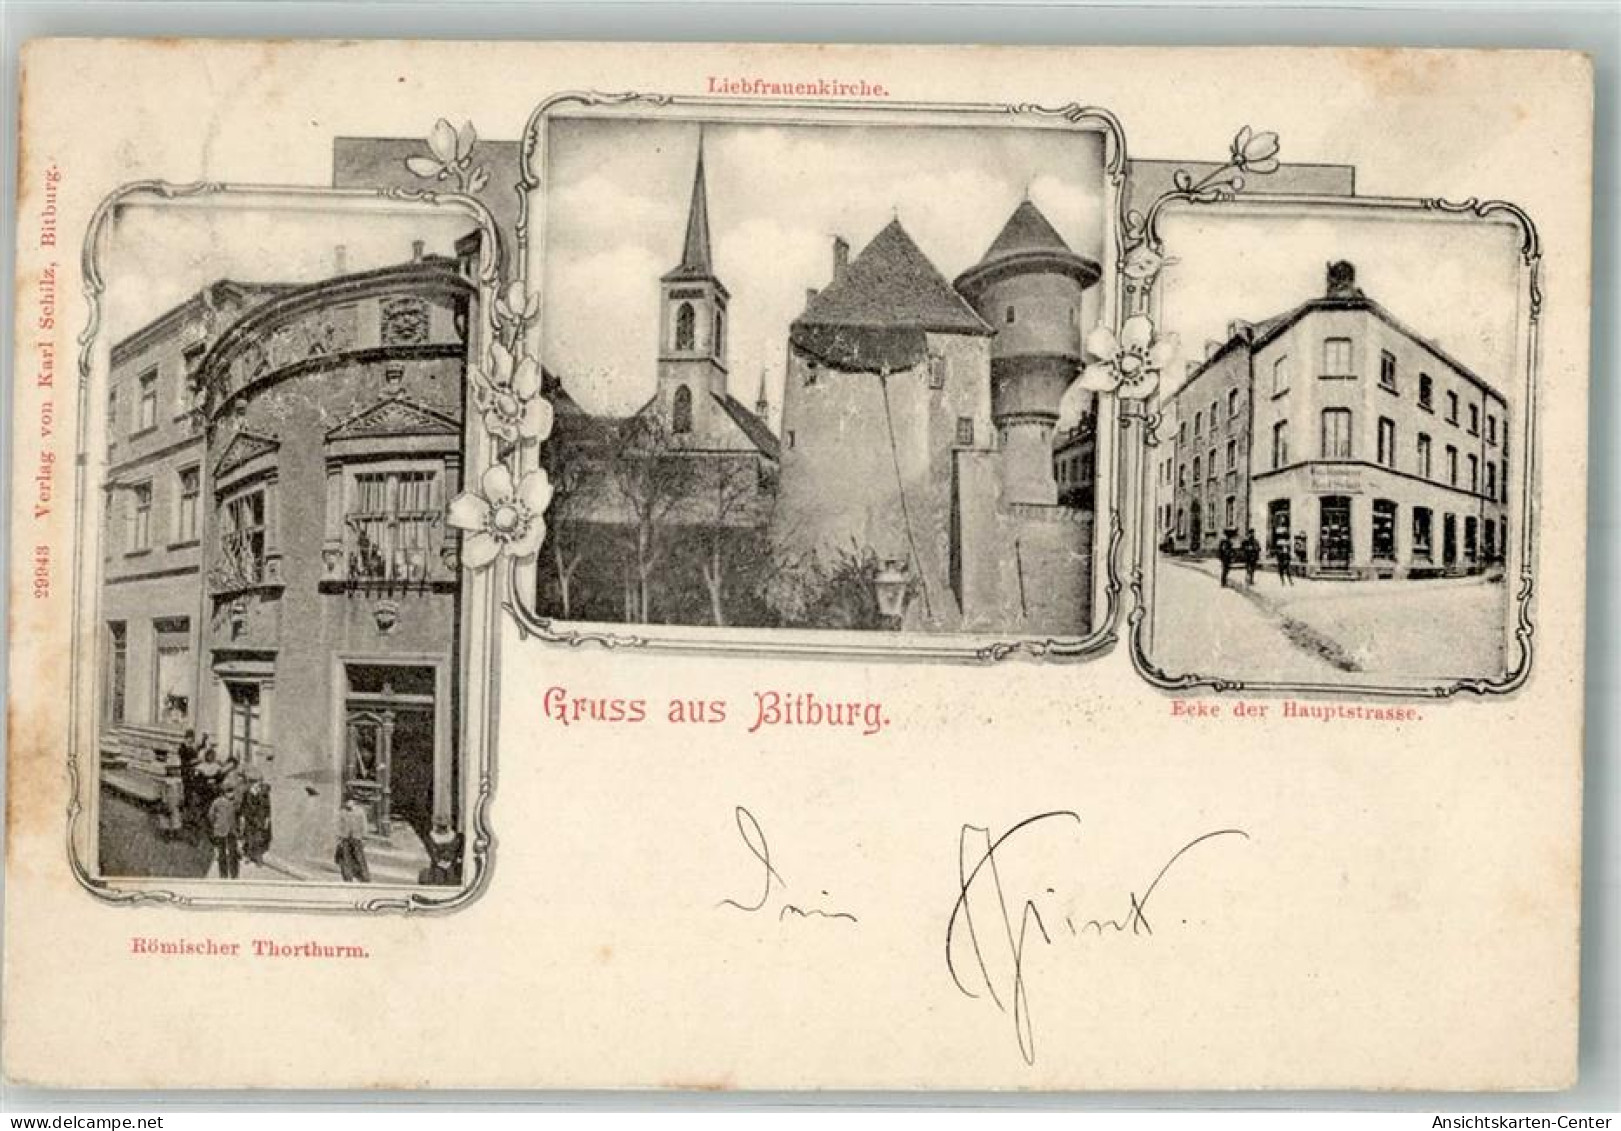 Liebfrauenkirche.
29943 Verlag von Karl Schilz, Bitburg.
Gruss aus Bitburg.
Ecke der Hauptstrasse.
Römischer Thorthurm.
Dein
Ansichtskarten-Center